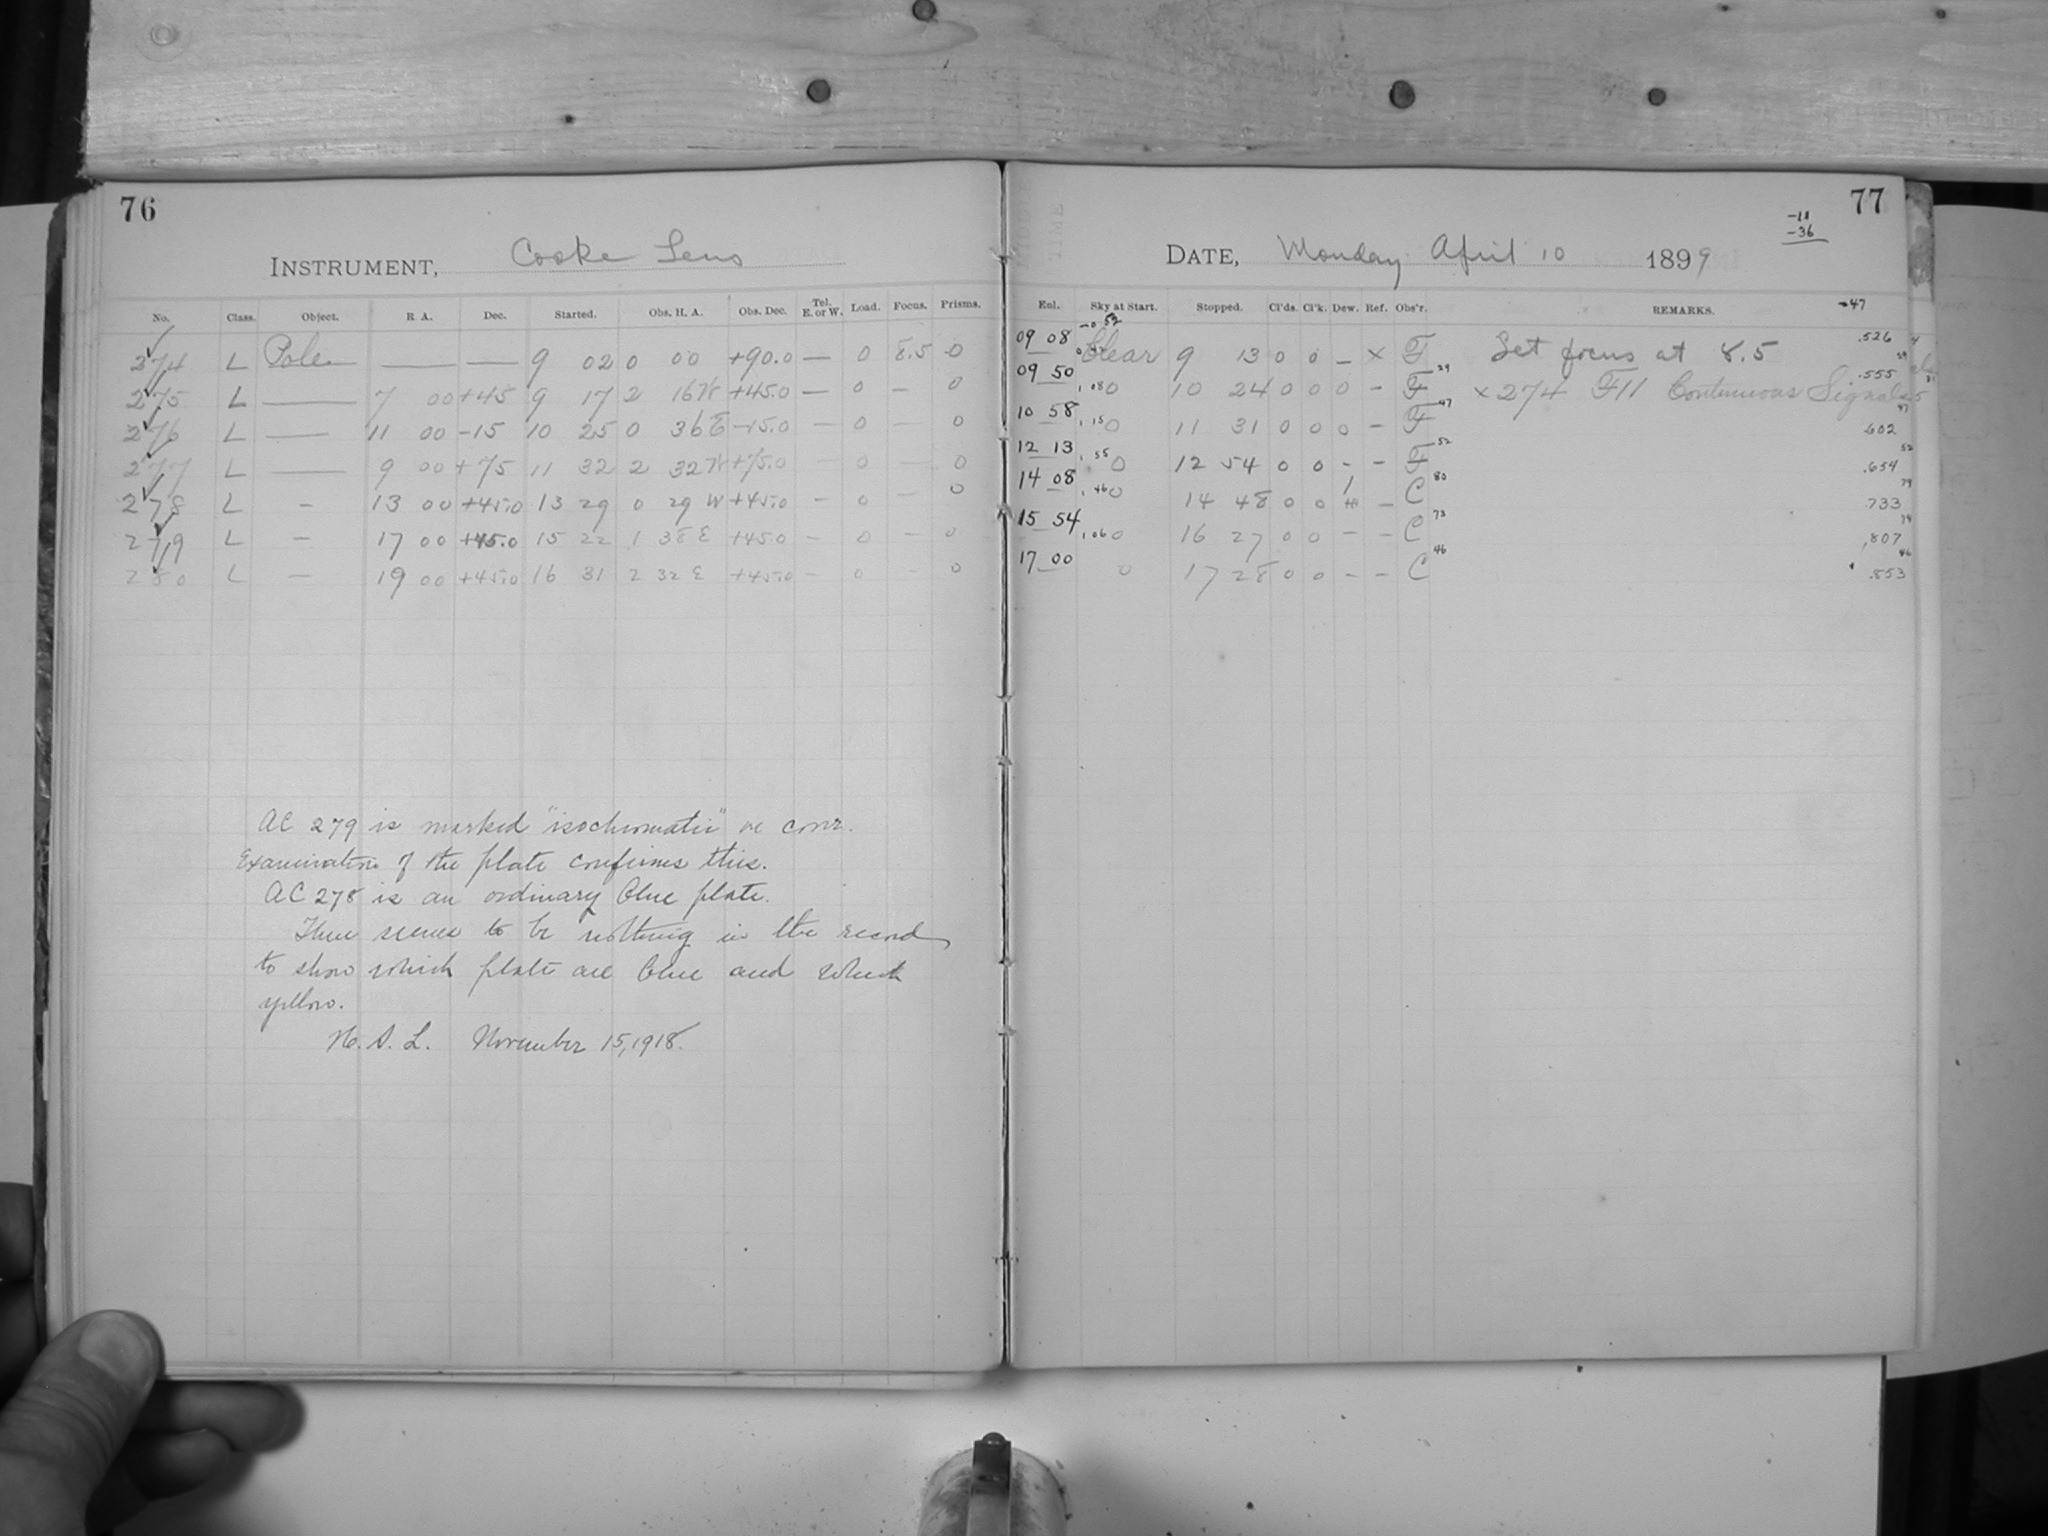 76
INSTRUMENT, Cooke Lens
No. Class. Object. R. A. Dec. Started. Obs. H. A. Obs. Dec. Tel. E. or W. Load. Focus. Prisms.
274 L Pole — — 9 02 0 00 +90.0 — 0 8.5 0
275 L — 7 00 +45 9 17 2 16 W +45.0 — 0 — 0
276 L — 11 00 -15 10 25 0 36 E -15.0 — 0 — 0
277 L — 9 00 +75 11 32 2 32 W +75.0 — 0 — 0
278 L — 13 00 +45.0 13 29 0 29 W +45.0 — 0 — 0
279 L — 17 00 +45.0 15 22 1 38 E +45.0 — 0 — 0
280 L — 19 00 +45.0 16 31 2 32 E +45.0 — 0 — 0
AC 279 is marked "isochromatic" on
Examination of the plate confirms this.
AC 278 is an ordinary blue plate.
There seems to be nothing in the record
to show which plate are blue and which
yellow.
H. S. L. November 15, 1918.
77
-11
-36
DATE, Monday April 10 1899
Enl. Sky at Start. Stopped. Cl'ds. Cl'k. Dew. Ref. Obs'r. REMARKS. -47
09 08 Clear 9 13 0 0 — × F Set focus at 8.5 .526
09 50 .08 0 10 24 0 0 0 — F 29 × 274 F11 Continuous Signals .555
10 58 .15 0 11 31 0 0 0 — F 47 .602
12 13 .55 0 12 54 0 0 — — F 52 .654
14 08 .46 0 14 48 0 0 1 — C 80 .733
15 54 .06 0 16 27 0 0 — — C 73 .807
17 00 0 17 28 0 0 — — C 46 .853